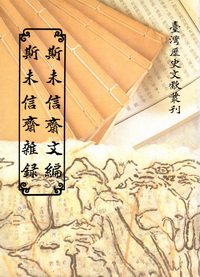 臺灣歷史文獻叢刊
斯未信齋文編
斯未信齋雜錄